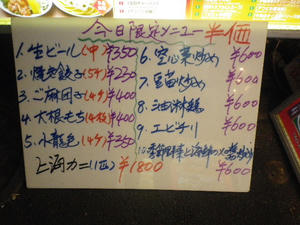 今日限定メニュー半価
1. 生ビール(中)¥350
2. 焼き餃子(5ケ)¥250
3. ごま団子(4ケ)¥400
4. 大根もち(4枚)¥400
5. 小龍包(4ケ)¥350
上海カニ(1匹)¥1800
6. 空心菜炒め ¥600
7. 豆苗炒め ¥600
8. 油淋鶏 ¥600
9. エビチリ ¥600
10. ¥600